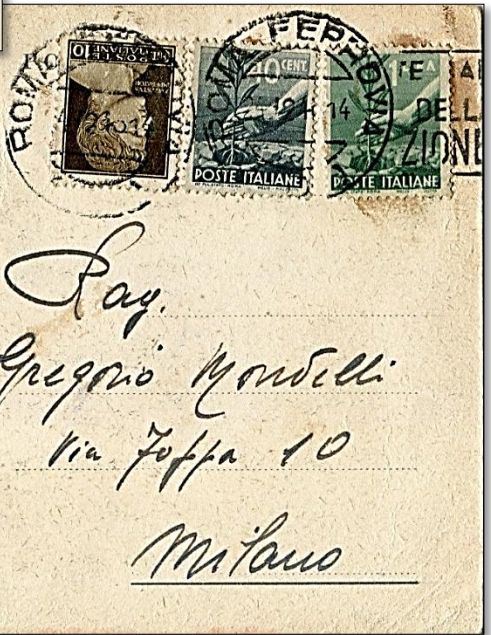 ROMA FERROVIA
10
POSTE ITALIANE
CENT.
POSTE ITALIANE
1
POSTE ITALIANE
DELL
ZIONE
Rag.
Gregorio Mondelli
Via Joppa 10
Milano